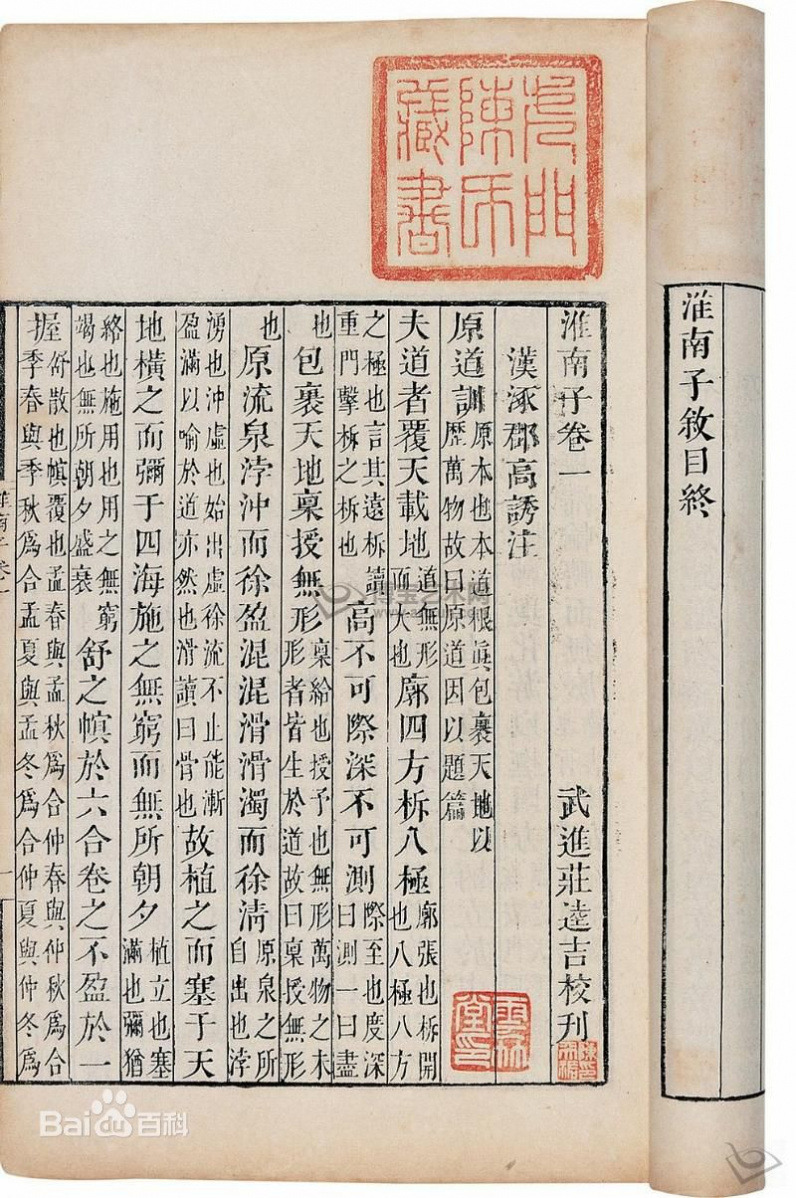 淮南子敘目終
陳氏
藏書
淮南子卷一 武進莊逵吉校刊
漢涿郡高誘注
原道訓 原本也本道根眞包裹天地以歷萬物故曰原道因以題篇
夫道者覆天載地 道無形而大也 廓四方柝八極 廓張也柝開也八極八方
之極也言其遠柝讀重門擊柝之柝也 高不可際深不可測 際至也度深曰測一曰盡
也 包裹天地稟授無形 稟給也授予也無形萬物之未形者皆生於道故曰稟授無形
也 原流泉浡沖而徐盈混混滑滑濁而徐淸 原泉之所自出也浡
湧也沖虛也始出虛徐流不止能漸盈滿以喻於道亦然也滑讀曰骨也 故植之而塞于天
地橫之而彌于四海施之無窮而無所朝夕 植立也塞滿也彌猶
絡也施用也用之無窮竭也無所朝夕盛衰 舒之幎於六合卷之不盈於一
握 舒散也幎覆也孟春與孟秋爲合仲春與仲秋爲合季春與季秋爲合孟夏與孟冬爲合仲夏與仲冬爲
淮南子卷一
Baidu百科